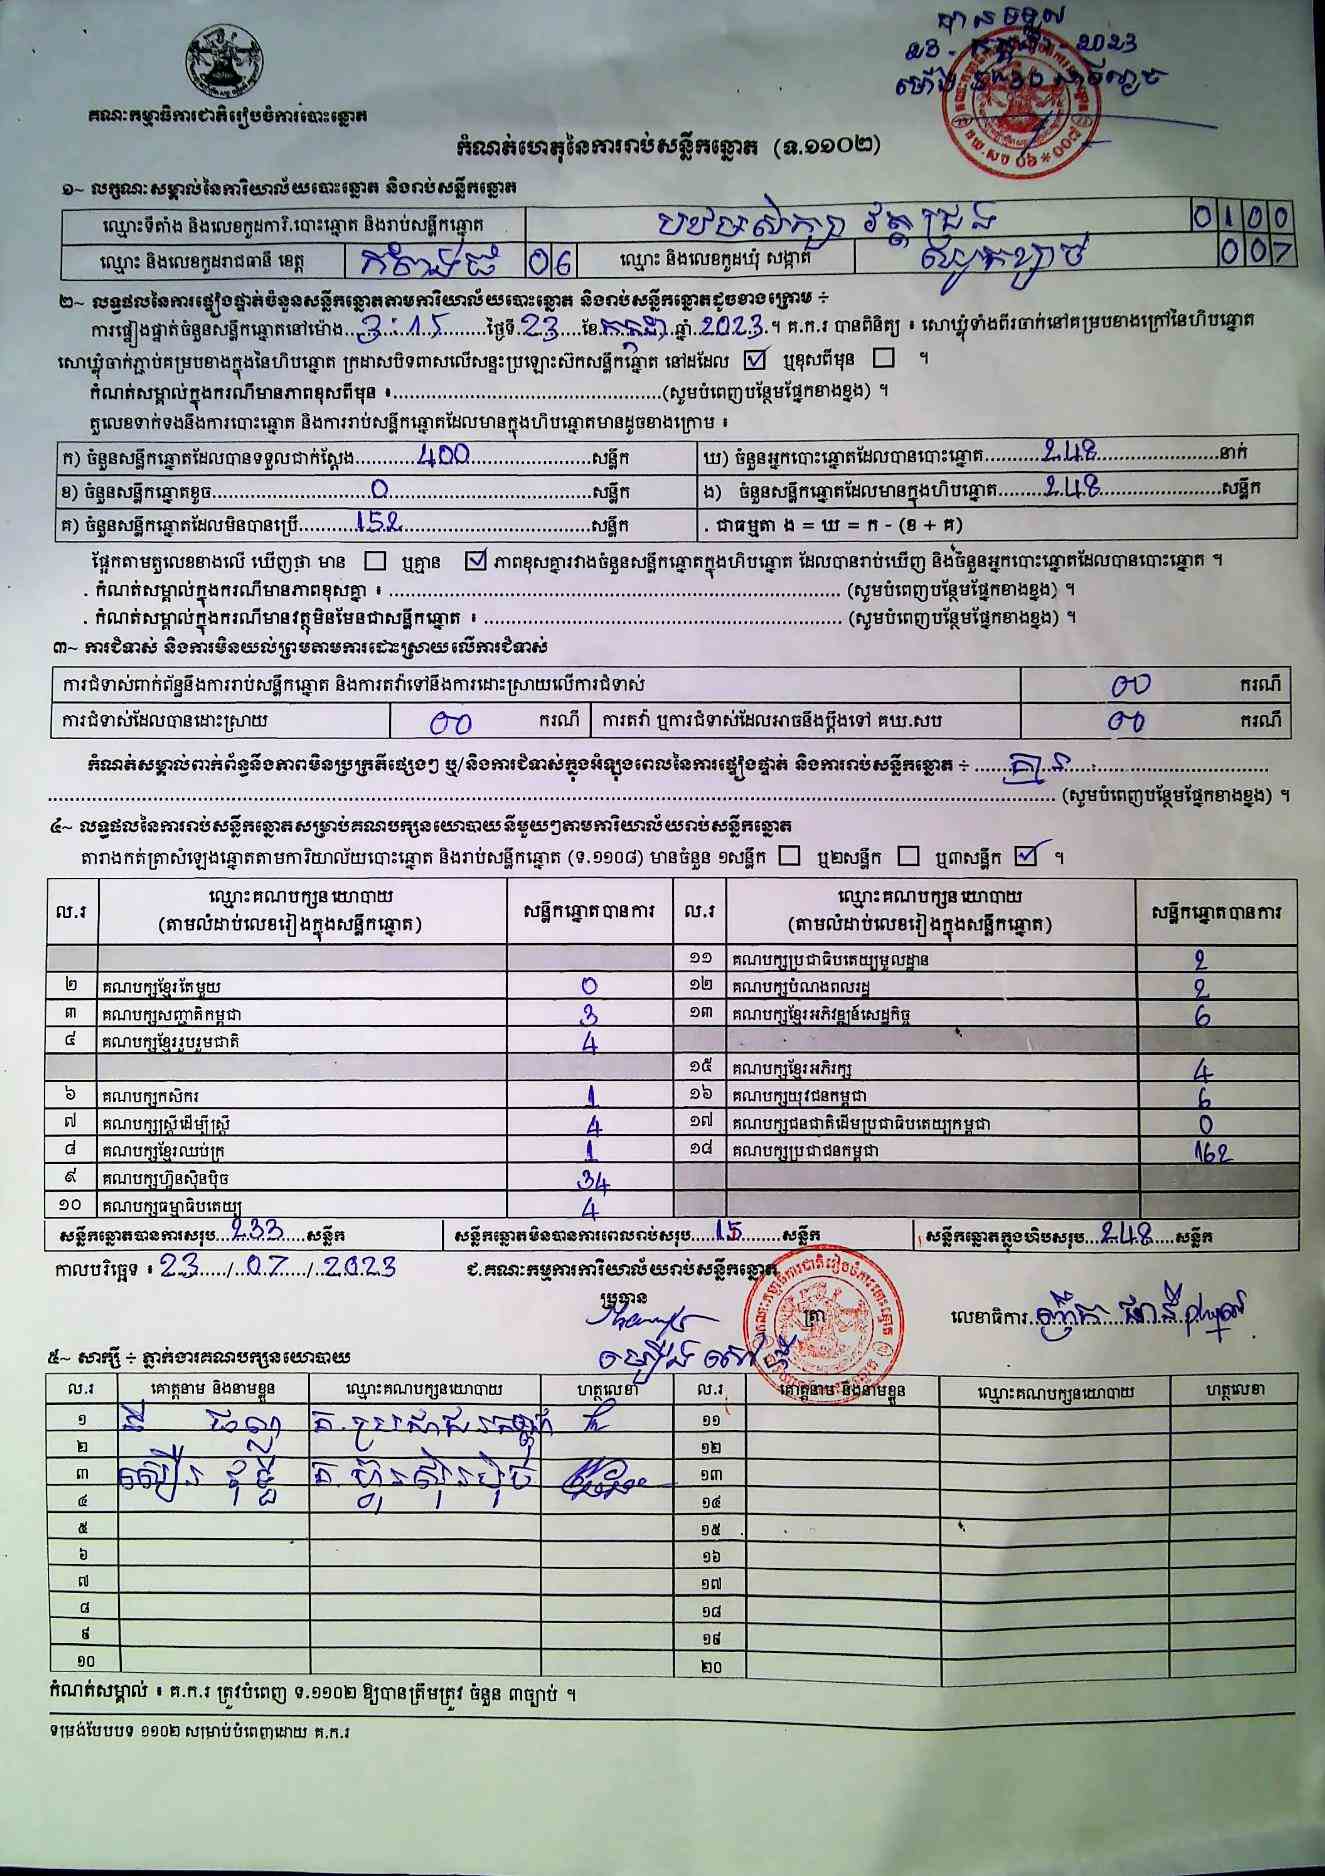 បានទទួល
23 - កក្កដា - 2023
គណៈកម្មាធិការជាតិរៀបចំការបោះឆ្នោត
កំណត់ហេតុនៃការរាប់សន្លឹកឆ្នោត (ទ.១១០២)
១~ លក្ខណៈសម្គាល់នៃការិយាល័យបោះឆ្នោត និងរាប់សន្លឹកឆ្នោត
ឈ្មោះទីតាំង និងលេខកូដការិ.បោះឆ្នោត និងរាប់សន្លឹកឆ្នោត បឋមសិក្សា វត្តជ្រង 0100
ឈ្មោះ និងលេខកូដរាជធានី ខេត្ត កំពង់ធំ 06 ឈ្មោះ និងលេខកូដឃុំ សង្កាត់ 007
២~ លទ្ធផលនៃការផ្ទៀងផ្ទាត់ចំនួនសន្លឹកឆ្នោតតាមការិយាល័យបោះឆ្នោត និងរាប់សន្លឹកឆ្នោតដូចខាងក្រោម ÷
ការផ្ទៀងផ្ទាត់ចំនួនសន្លឹកឆ្នោតនៅម៉ោង..3:15....ថ្ងៃទី.23....ខែ.កក្កដា.ឆ្នាំ..2023.។ គ.ក.រ បានពិនិត្យ ៖ សោឃ្លុំទាំងពីរចាក់នៅគម្របខាងក្រៅនៃហិបឆ្នោត
សោឃ្លុំចាក់ភ្ជាប់គម្របខាងក្នុងនៃហិបឆ្នោត ក្រដាសបិទពាសលើសន្ទះប្រឡោះស៊កសន្លឹកឆ្នោត នៅដដែល ☑ ឬខុសពីមុន ☐ ។
កំណត់សម្គាល់ក្នុងករណីមានភាពខុសពីមុន ៖..........(សូមបំពេញបន្ថែមផ្នែកខាងខ្នង) ។
តួលេខទាក់ទងនឹងការបោះឆ្នោត និងការរាប់សន្លឹកឆ្នោតដែលមានក្នុងហិបឆ្នោតមានដូចខាងក្រោម ៖
ក) ចំនួនសន្លឹកឆ្នោតដែលបានទទួលជាក់ស្តែង..........400..........សន្លឹក ឃ) ចំនួនអ្នកបោះឆ្នោតដែលបានបោះឆ្នោត..........248..........នាក់
ខ) ចំនួនសន្លឹកឆ្នោតខូច..........0..........សន្លឹក ង) ចំនួនសន្លឹកឆ្នោតដែលមានក្នុងហិបឆ្នោត..........248..........សន្លឹក
គ) ចំនួនសន្លឹកឆ្នោតដែលមិនបានប្រើ..........152..........សន្លឹក . ជាធម្មតា ង = ឃ = ក - (ខ + គ)
ផ្អែកតាមតួលេខខាងលើ ឃើញថា មាន ☐ ឬគ្មាន ☑ ភាពខុសគ្នារវាងចំនួនសន្លឹកឆ្នោតក្នុងហិបឆ្នោត ដែលបានរាប់ឃើញ និងចំនួនអ្នកបោះឆ្នោតដែលបានបោះឆ្នោត ។
. កំណត់សម្គាល់ក្នុងករណីមានភាពខុសគ្នា ៖ .......... (សូមបំពេញបន្ថែមផ្នែកខាងខ្នង) ។
. កំណត់សម្គាល់ក្នុងករណីមានវត្ថុមិនមែនជាសន្លឹកឆ្នោត ៖ .......... (សូមបំពេញបន្ថែមផ្នែកខាងខ្នង) ។
៣~ ការជំទាស់ និងការមិនយល់ព្រមតាមការដោះស្រាយលើការជំទាស់
ការជំទាស់ពាក់ព័ន្ធនឹងការរាប់សន្លឹកឆ្នោត និងការតវ៉ាទៅនឹងការដោះស្រាយលើការជំទាស់ 00 ករណី
ការជំទាស់ដែលបានដោះស្រាយ 00 ករណី ការតវ៉ា ឬការជំទាស់ដែលអាចនឹងប្តឹងទៅ គឃ.សប 00 ករណី
កំណត់សម្គាល់ពាក់ព័ន្ធនឹងភាពមិនប្រក្រតីផ្សេងៗ ឬ/និងការជំទាស់ក្នុងអំឡុងពេលនៃការផ្ទៀងផ្ទាត់ និងការរាប់សន្លឹកឆ្នោត ÷ ......គ្មាន..........
.......... (សូមបំពេញបន្ថែមផ្នែកខាងខ្នង) ។
៤~ លទ្ធផលនៃការរាប់សន្លឹកឆ្នោតសម្រាប់គណបក្សនយោបាយនីមួយៗតាមការិយាល័យរាប់សន្លឹកឆ្នោត
តារាងកត់ត្រាសំឡេងឆ្នោតតាមការិយាល័យបោះឆ្នោត និងរាប់សន្លឹកឆ្នោត (ទ.១១០៨) មានចំនួន ១សន្លឹក ☐ ឬ២សន្លឹក ☐ ឬ៣សន្លឹក ☑ ។
ល.រ ឈ្មោះគណបក្សនយោបាយ (តាមលំដាប់លេខរៀងក្នុងសន្លឹកឆ្នោត) សន្លឹកឆ្នោតបានការ ល.រ ឈ្មោះគណបក្សនយោបាយ (តាមលំដាប់លេខរៀងក្នុងសន្លឹកឆ្នោត) សន្លឹកឆ្នោតបានការ
១១ គណបក្សប្រជាធិបតេយ្យមូលដ្ឋាន 2
២ គណបក្សខ្មែរតែមួយ 0 ១២ គណបក្សបំណងពលរដ្ឋ 2
៣ គណបក្សសញ្ជាតិកម្ពុជា 3 ១៣ គណបក្សខ្មែរអភិវឌ្ឍន៍សេដ្ឋកិច្ច 6
៤ គណបក្សខ្មែររួបរួមជាតិ 4
១៥ គណបក្សខ្មែរអភិរក្ស 4
៦ គណបក្សកសិករ 1 ១៦ គណបក្សយុវជនកម្ពុជា 6
៧ គណបក្សស្ត្រីដើម្បីស្ត្រី 4 ១៧ គណបក្សជនជាតិដើមប្រជាធិបតេយ្យកម្ពុជា 0
៨ គណបក្សខ្មែរឈប់ក្រ 1 ១៨ គណបក្សប្រជាជនកម្ពុជា 162
៩ គណបក្សហ៊្វុនស៊ិនប៉ិច 34
១០ គណបក្សធម្មាធិបតេយ្យ 4
សន្លឹកឆ្នោតបានការសរុប..233....សន្លឹក សន្លឹកឆ្នោតមិនបានការពេលរាប់សរុប....15......សន្លឹក សន្លឹកឆ្នោតក្នុងហិបសរុប..248....សន្លឹក
កាលបរិច្ឆេទ ៖ 23..../..07..../..2023 ជ.គណៈកម្មការការិយាល័យរាប់សន្លឹកឆ្នោត
ប្រធាន ត្រា លេខាធិការ
៥~ សាក្សី ÷ ភ្នាក់ងារគណបក្សនយោបាយ
ល.រ គោត្តនាម និងនាមខ្លួន ឈ្មោះគណបក្សនយោបាយ ហត្ថលេខា ល.រ គោត្តនាម និងនាមខ្លួន ឈ្មោះគណបក្សនយោបាយ ហត្ថលេខា
១ គ.ប្រជាជនកម្ពុជា ១១
២ ១២
៣ គ.ហ៊្វុនស៊ិនប៉ិច ១៣
៤ ១៤
៥ ១៥
៦ ១៦
៧ ១៧
៨ ១៨
៩ ១៩
១០ ២០
កំណត់សម្គាល់ ៖ គ.ក.រ ត្រូវបំពេញ ទ.១១០២ ឱ្យបានត្រឹមត្រូវ ចំនួន ៣ច្បាប់ ។
ទម្រង់បែបបទ ១១០២ សម្រាប់បំពេញដោយ គ.ក.រ